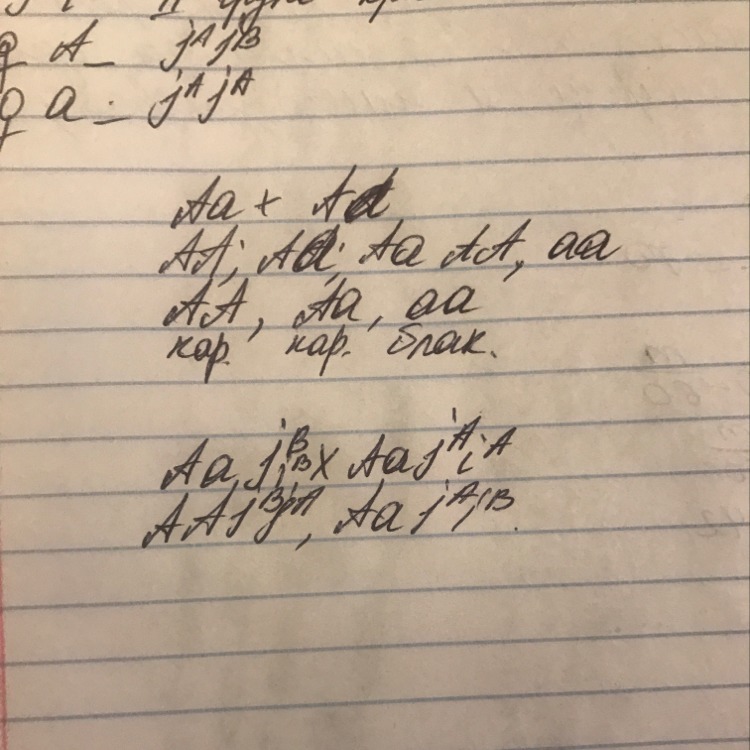 II
♀ A_ jᴬjᴮ
♀ a_ jᴬjᴬ
Aa + Aa
AA; Aa; Aa AA, aa
AA, Aa, aa
кар. кар. Блак.
Aa jᴮjᴮ x Aa jᴬiᴬ
AAjᴮjᴬ, Aa jᴬjᴮ.